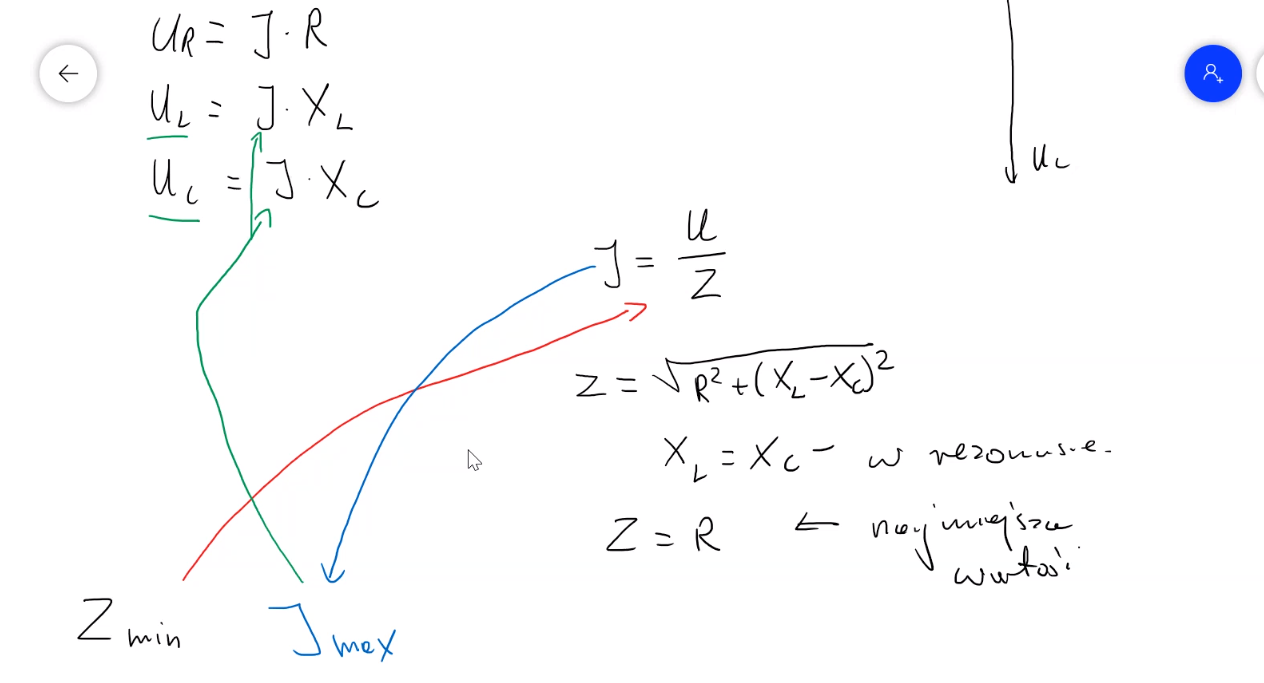 U_R = J · R
U_L = J · X_L
U_C = J · X_C
U_C
J = U/Z
Z = √(R² + (X_L − X_C)²)
X_L = X_C – w rezonansie.
Z = R ← najmniejsza
wartość
Z min
J max